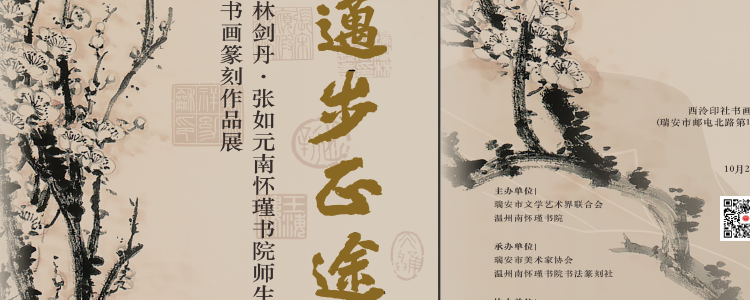 邁步正途
林剑丹·张如元南怀瑾书院师生
书画篆刻作品展
西泠印社书画
(瑞安市邮电北路第
10月2
主办单位|
瑞安市文学艺术界联合会
温州南怀瑾书院
承办单位|
瑞安市美术家协会
温州南怀瑾书院书法篆刻社